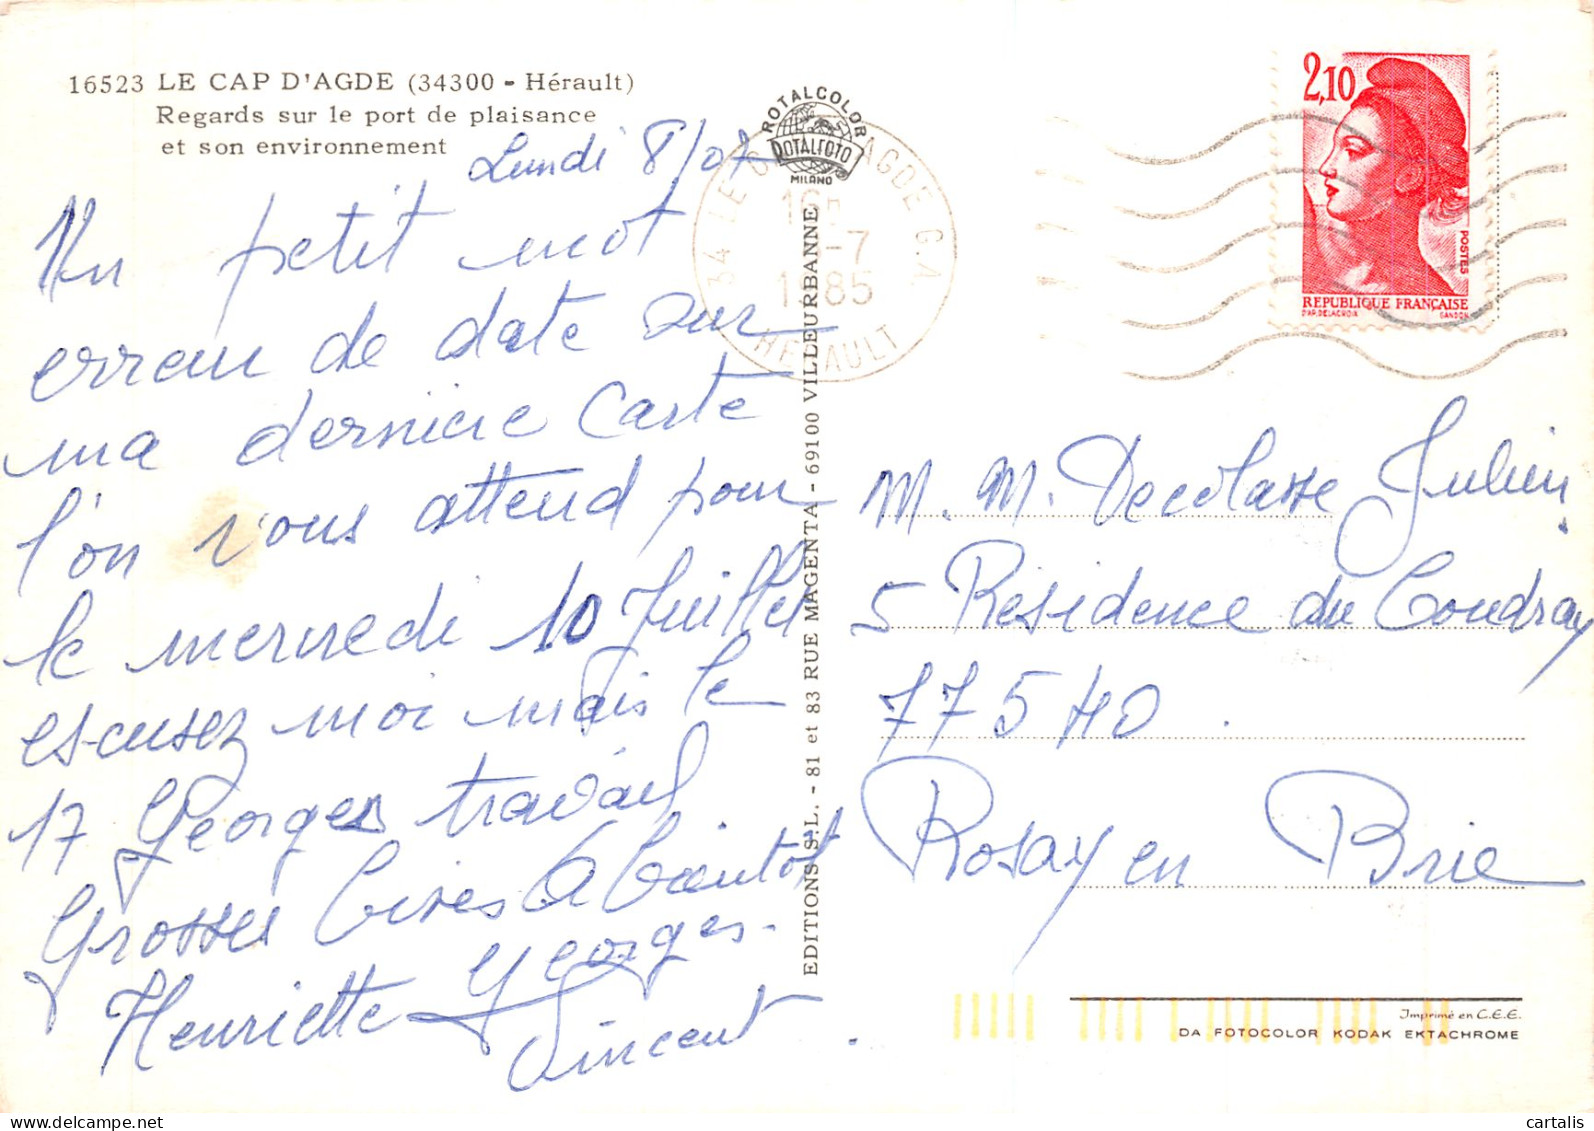 16523 LE CAP D'AGDE (34300 - Hérault)
Regards sur le port de plaisance
et son environnement
Lundi 8/07
Un petit mot
erreur de date sur
ma derniere Carte
l'on vous attend pour
le mercredi 10 Juillet
escusez moi mais le
17 Georges travail
Grosses bises a bientot
Henriette Georges.
Vincent.
ROTALCOLOR
ROTALFOTO
MILANO
34 LE CAP D'AGDE C.A.
16H
-7
1985
HERAULT
EDITIONS S.L. - 81 et 83 RUE MAGENTA - 69100 VILLEURBANNE
2,10
POSTES
REPUBLIQUE FRANÇAISE
D'AP. DELACROIX
GANDON
M. M. Decolasse Julien
5 Résidence du Coudray
77540
Rosay en Brie
Imprimé en C.E.E.
DA FOTOCOLOR KODAK EKTACHROME
cartalis
cartalis.delcampe.net